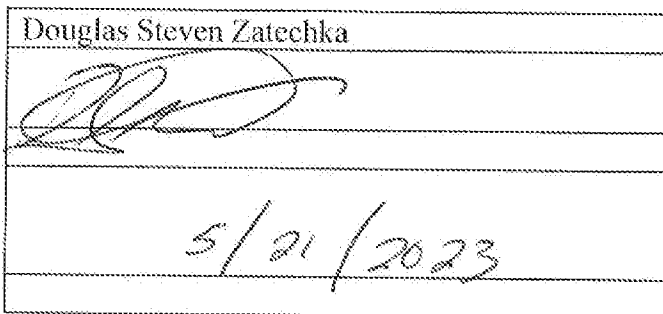 Douglas Steven Zatechka
5/21/2023